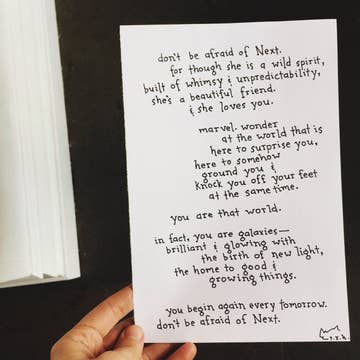 don't be afraid of Next.
for though she is a wild spirit,
built of whimsy & unpredictability,
she's a beautiful friend.
& she loves you.
marvel. wonder
at the world that is
here to surprise you,
here to somehow
ground you &
knock you off your feet
at the same time.
you are that world.
in fact, you are galaxies—
brilliant & glowing with
the birth of new light,
the home to good &
growing things.
you begin again every tomorrow.
don't be afraid of Next.